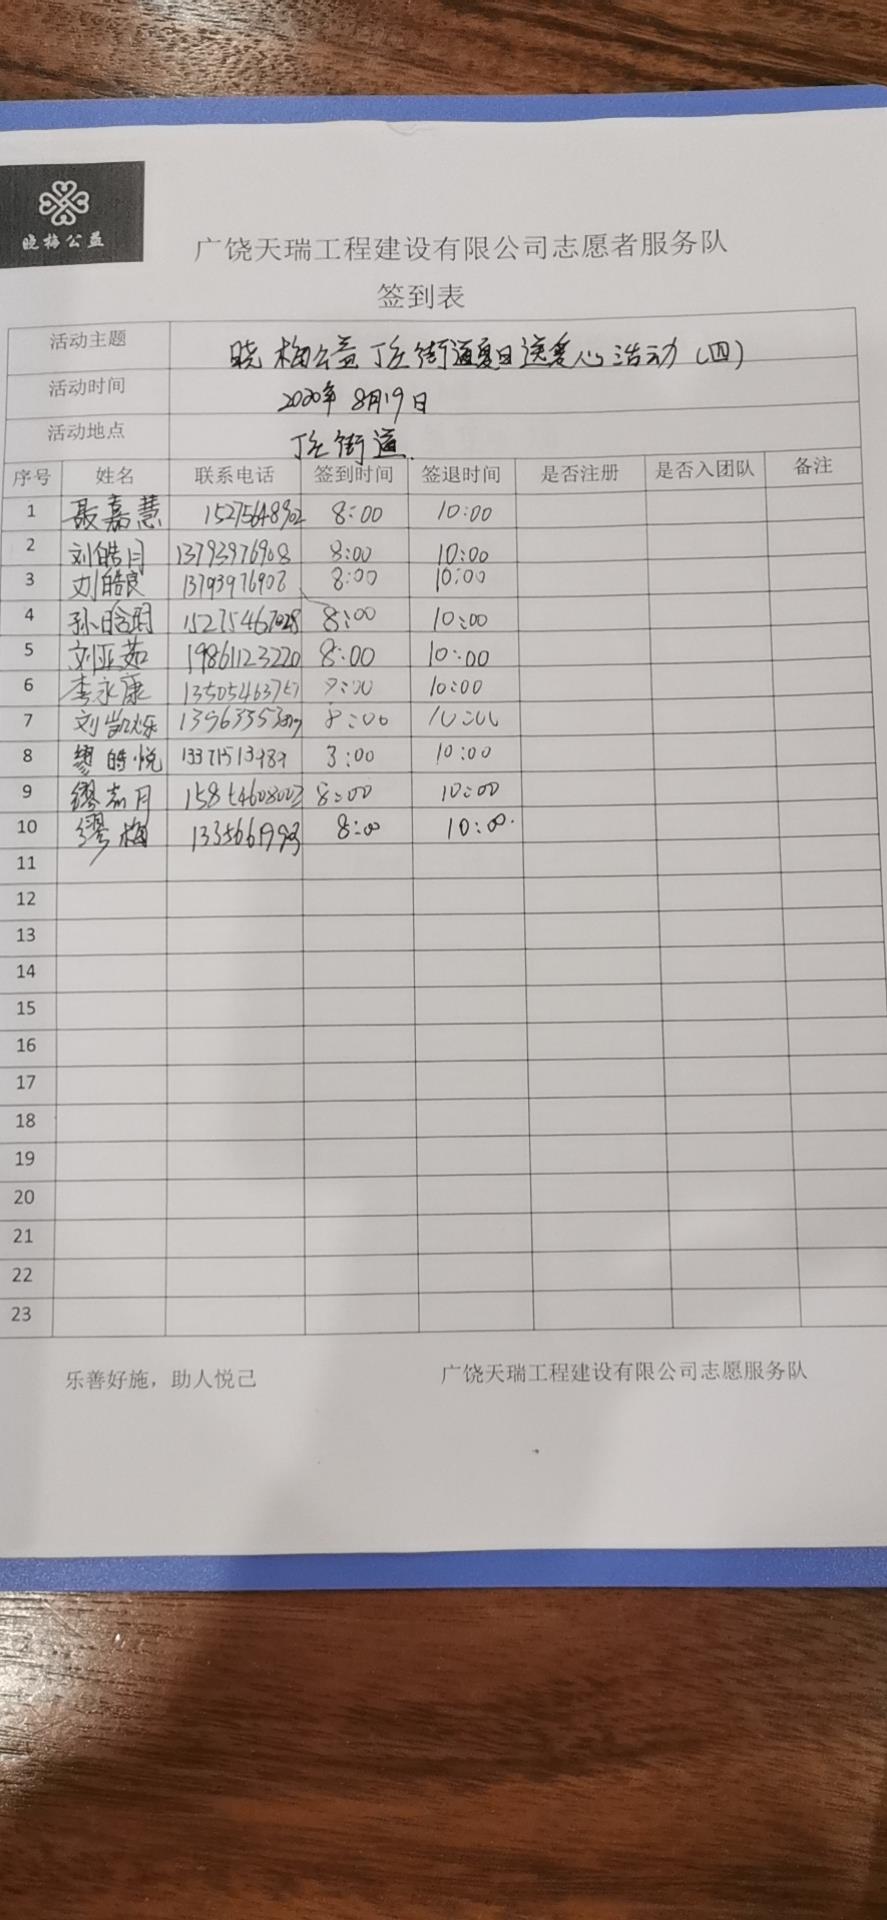 晓梅公益
广饶天瑞工程建设有限公司志愿者服务队
签到表
活动主题 晓梅公益丁庄街道夏日送爱心活动(四)
活动时间 2020年8月19日
活动地点 丁庄街道
序号 姓名 联系电话 签到时间 签退时间 是否注册 是否入团队 备注
1 聂嘉慧 15275648902 8:00 10:00
2 刘皓月 13793976908 8:00 10:00
3 刘皓良 13793976908 8:00 10:00
4 孙晗玥 15275467028 8:00 10:00
5 刘亚茹 19861123220 8:00 10:00
6 李永康 10:00
7 刘凯乐 8:00 10:00
8 皓悦 3:00 10:00
9 缪嘉月 8:00 10:00
10 缪梅 8:00 10:00.
11
12
13
14
15
16
17
18
19
20
21
22
23
乐善好施，助人悦己 广饶天瑞工程建设有限公司志愿服务队